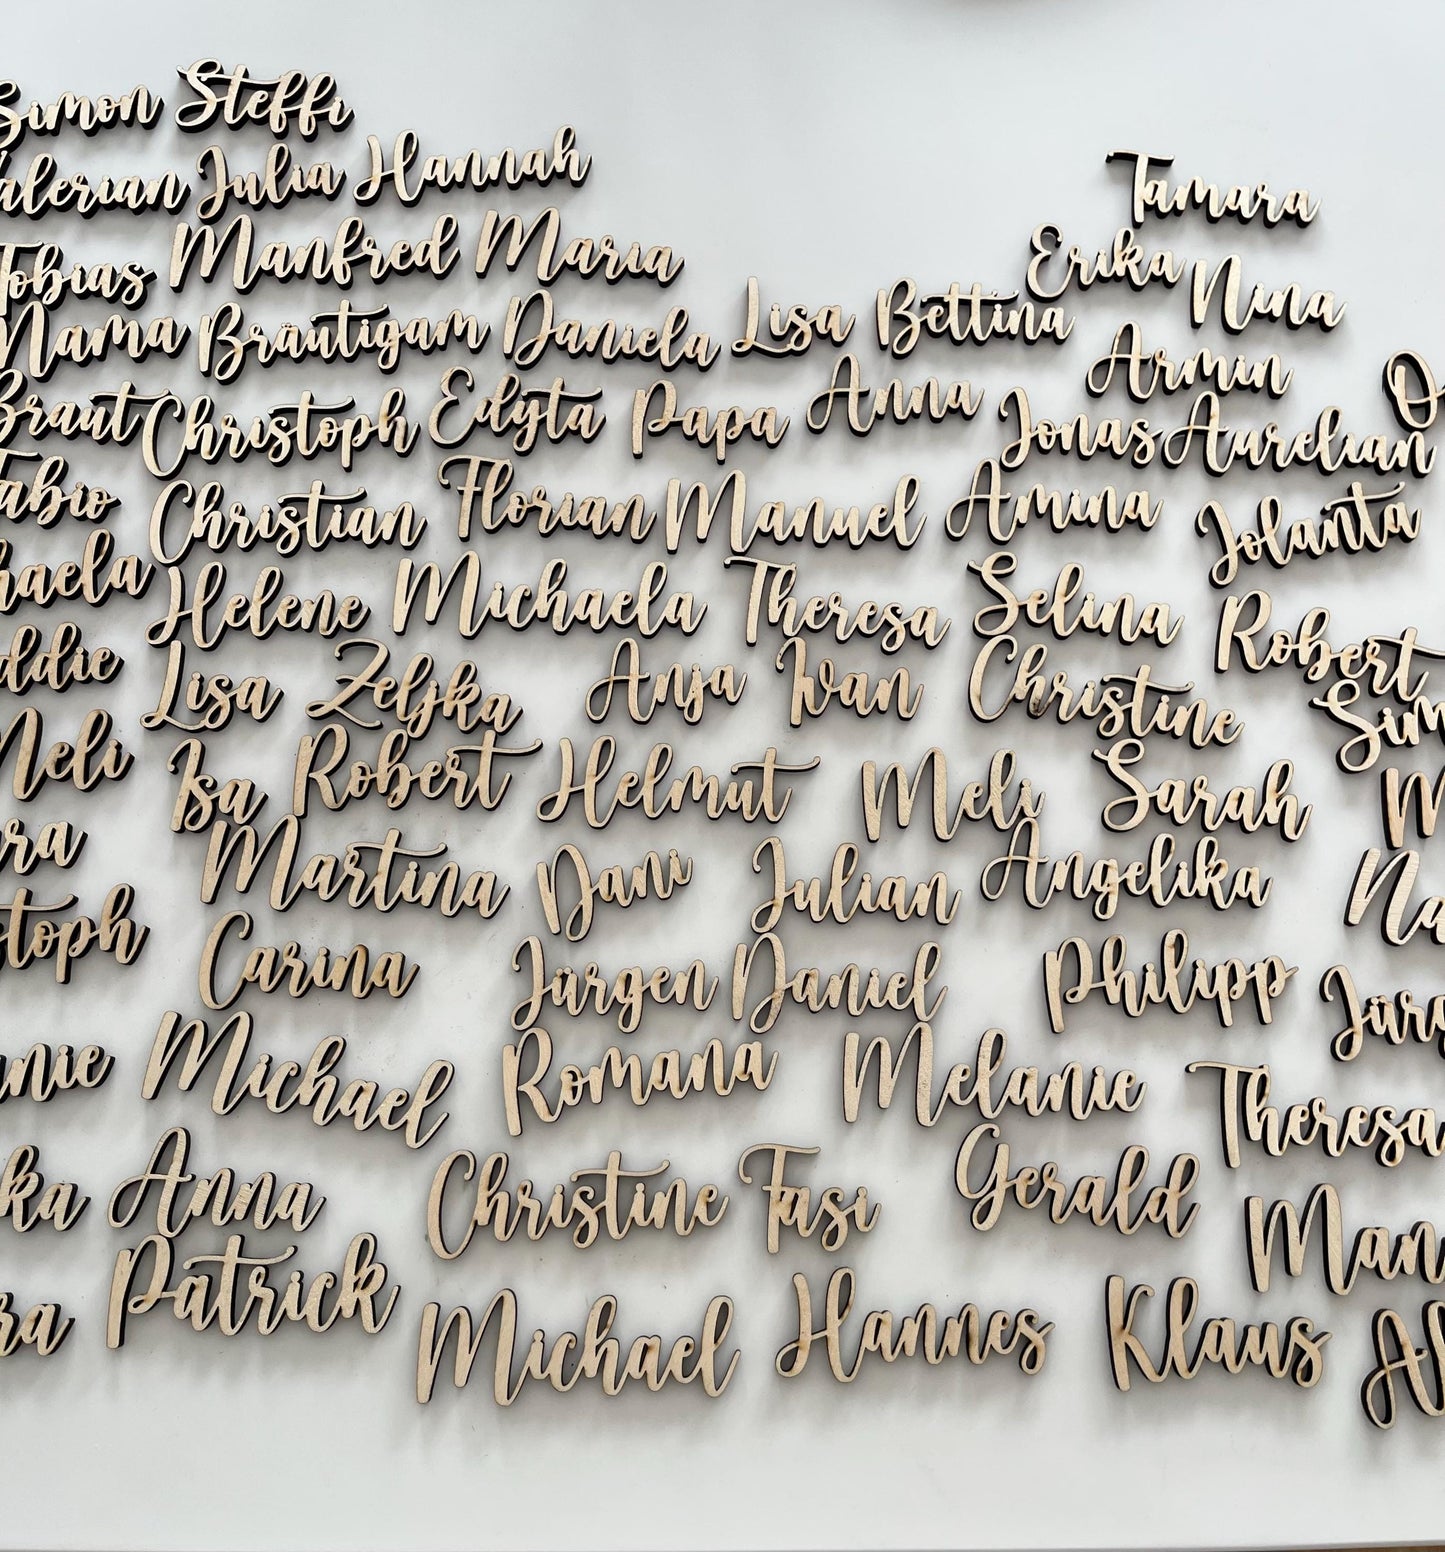 Simon Steffi
alerian Julia Hannah
Tamara
Tobias Manfred Maria
Erika Nina
Mama Bräutigam Daniela Lisa Bettina
Armin
Braut Christoph Edyta Papa Anna
Jonas Aurelian
abio Christian Florian Manuel Amina Jolanta
haela Helene Michaela Theresa Selina Robert
ddie Lisa Zeljka Anja Ivan Christine Sim
Meli Isa Robert Helmut Meli Sarah M
ra Martina Dani Julian Angelika Na
stoph Carina Jürgen Daniel Philipp Jürg
nie Michael Romana Melanie Theresa
ka Anna Christine Fasi Gerald Man
ra Patrick Michael Hannes Klaus Al